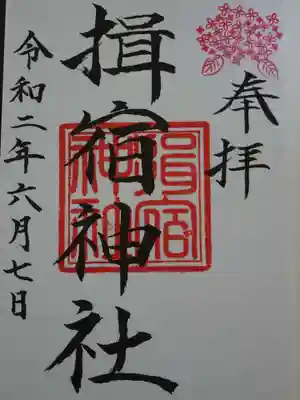 奉拝
揖宿神社
揖宿神社
令和二年六月七日